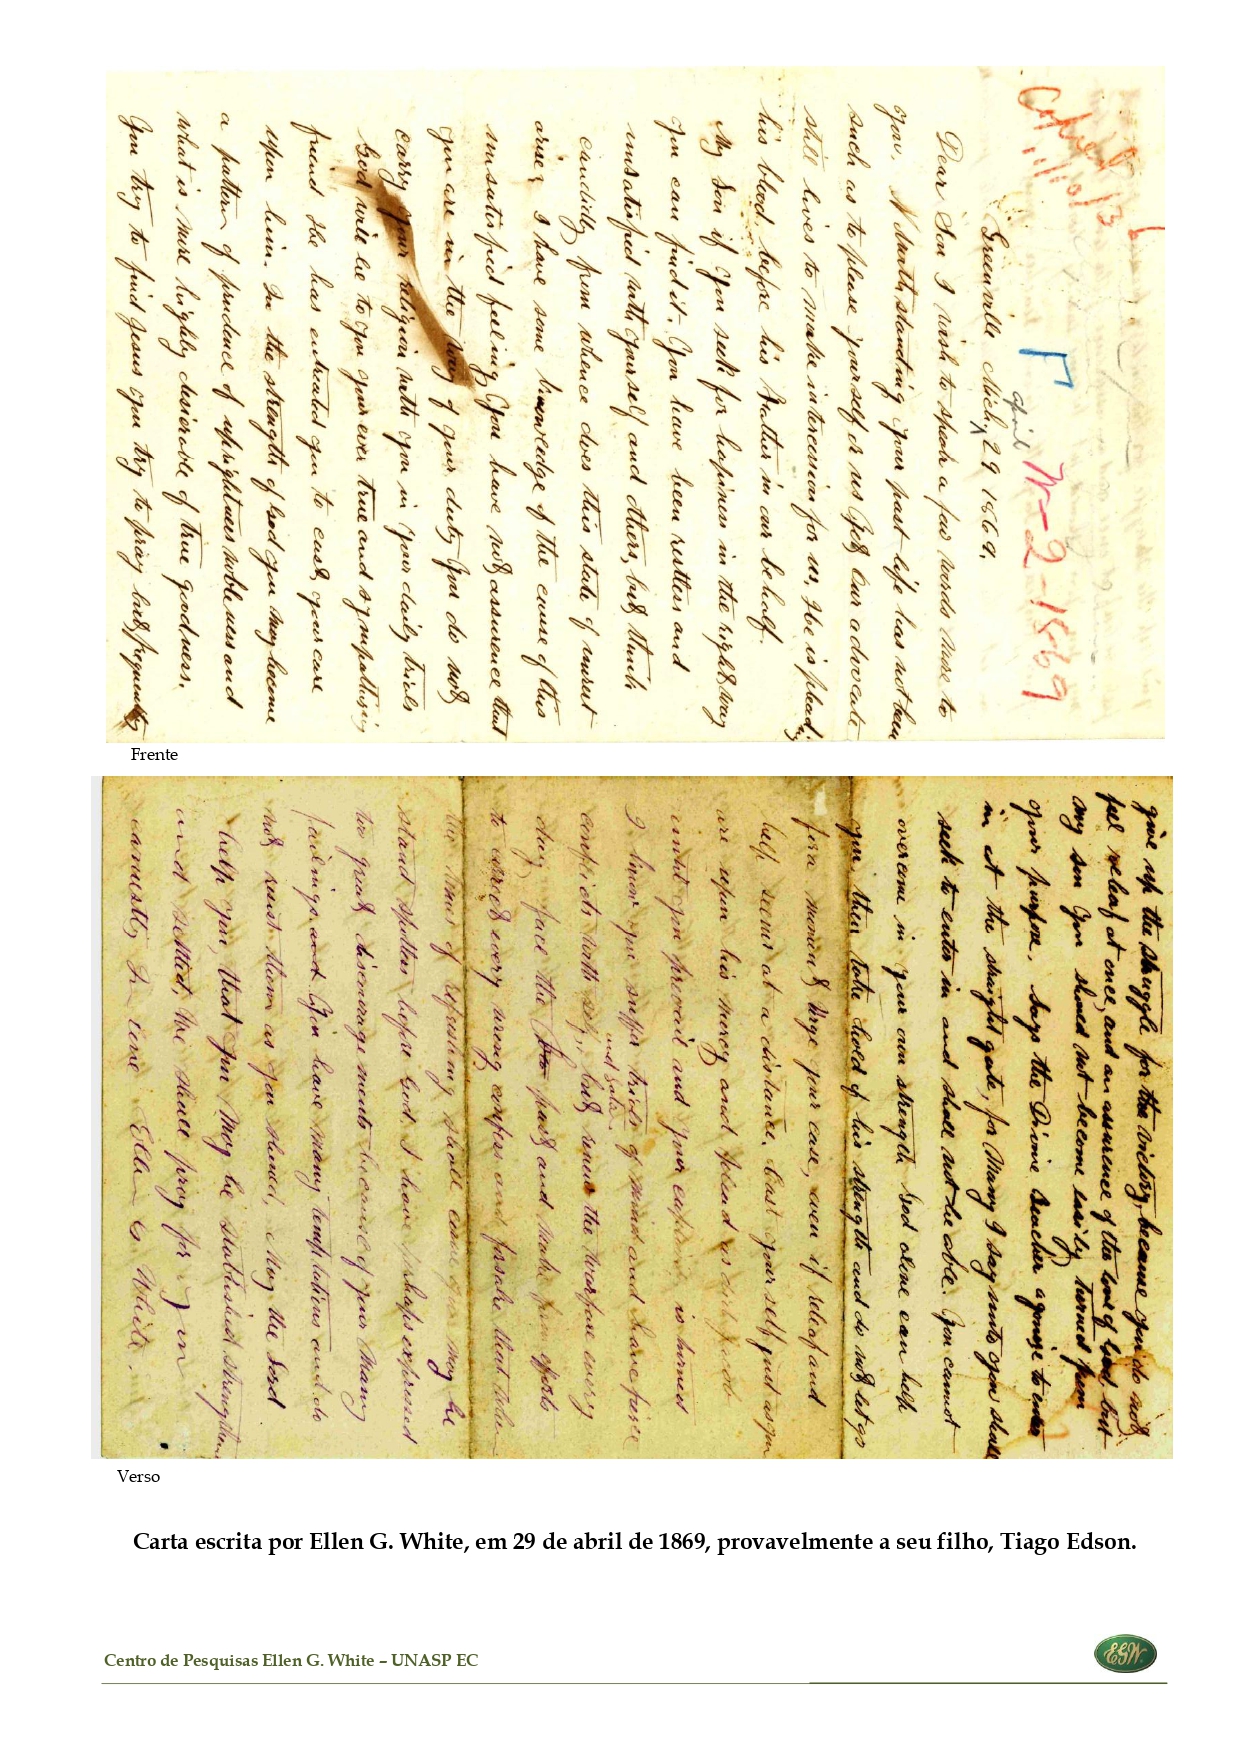 Copied
11/10/36
F
W-2-1869
april
Greenville Mich, ^ 29 1869.
Dear Son I wish to speak a few words more to
you. Notwithstanding your past life has not been
such as to please yourself or us yet our advocate
still lives to make intercession for us, He is pleading
his blood before his Father in our behalf.
My Son if you seek for hapiness in the right way
you can find it. You have been restless and
unsatisfied with yourself and others, but think
candidly from whence does this state of unrest
arise, I have some knowledge of the cause of this
unsatisfied feeling, You have not assurence that
you are in the way of your duty You do not
carry your religion with you in your daily trials
God will be to you your ever true and sympathising
friend He has entreated you to cast your care
upon him. In the strength of God you may become
a pattern of prudence of uprightness nobleness and
what is more highly desirable of true goodness.
You try to find Jesus you try to pray but frequently
Frente
give up the struggle for the victory, because you do not
feel releaf at once, and an assurence of the love of God but
my son you should not become easily turned from
your purpose. Says the Divine teacher agonize to enter
in at the straight gate, for Many I say unto you, shall
seek to enter in and shall not be able. You cannot
overcome in your own strength God alone can help
you, then take hold of his strength and do not let go
for a moment Urge your case, even if releaf and
help seems at a distance. Cast yourself just as you
are upon his mercy and plead as did Jacob
until you prevail and your captivity is turned
I know you suffer trials of mind and have fierce
and Satan
conflicts with self, but renew the warfare every
day, face the past and make firm efforts
to correct every wrong confess and forsake that when
the times of refreshing shall come you may be
stand spotless before God I have perhaps expressed
too great discouragements because of your many
failings and You have many temptations and do
not resist them as you should, May the Lord
help you, that you may be stablished strengthened
and settled, We shall pray for you
earnestly In love Ellen G. White.
Verso
Carta escrita por Ellen G. White, em 29 de abril de 1869, provavelmente a seu filho, Tiago Edson.
Centro de Pesquisas Ellen G. White – UNASP EC
EGW